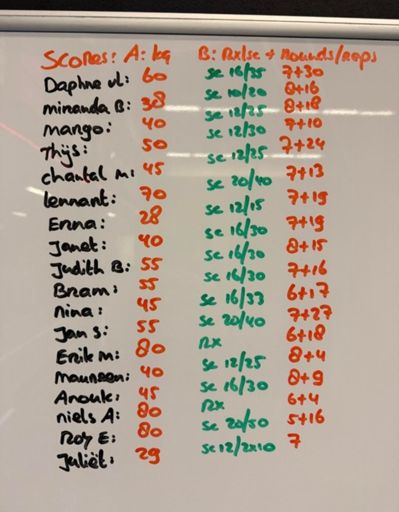 Scores: A: kg B: Rx/sc + Rounds/reps
Daphne vl: 60 sc 16/35 7+30
miranda B: 38 sc 10/20 8+16
mango: 40 sc 12/25 8+18
Thijs: 50 sc 12/30 7+10
chantal m: 45 sc 12/25 7+24
lennart: 70 sc 20/40 7+13
Enna: 28 sc 12/15 7+19
Janet: 40 sc 16/30 7+19
Judith B: 55 sc 16/30 8+15
Bram: 55 sc 16/30 7+16
nina: 45 sc 16/33 6+17
Jan S: 55 sc 20/40 7+27
Erik m: 80 RX 6+18
maureen: 40 sc 12/25 8+4
Anouk: 45 sc 16/30 8+9
niels A: 80 RX 6+4
Roy E: 80 sc 20/50 5+16
Juliët: 29 sc 12/2x10 7